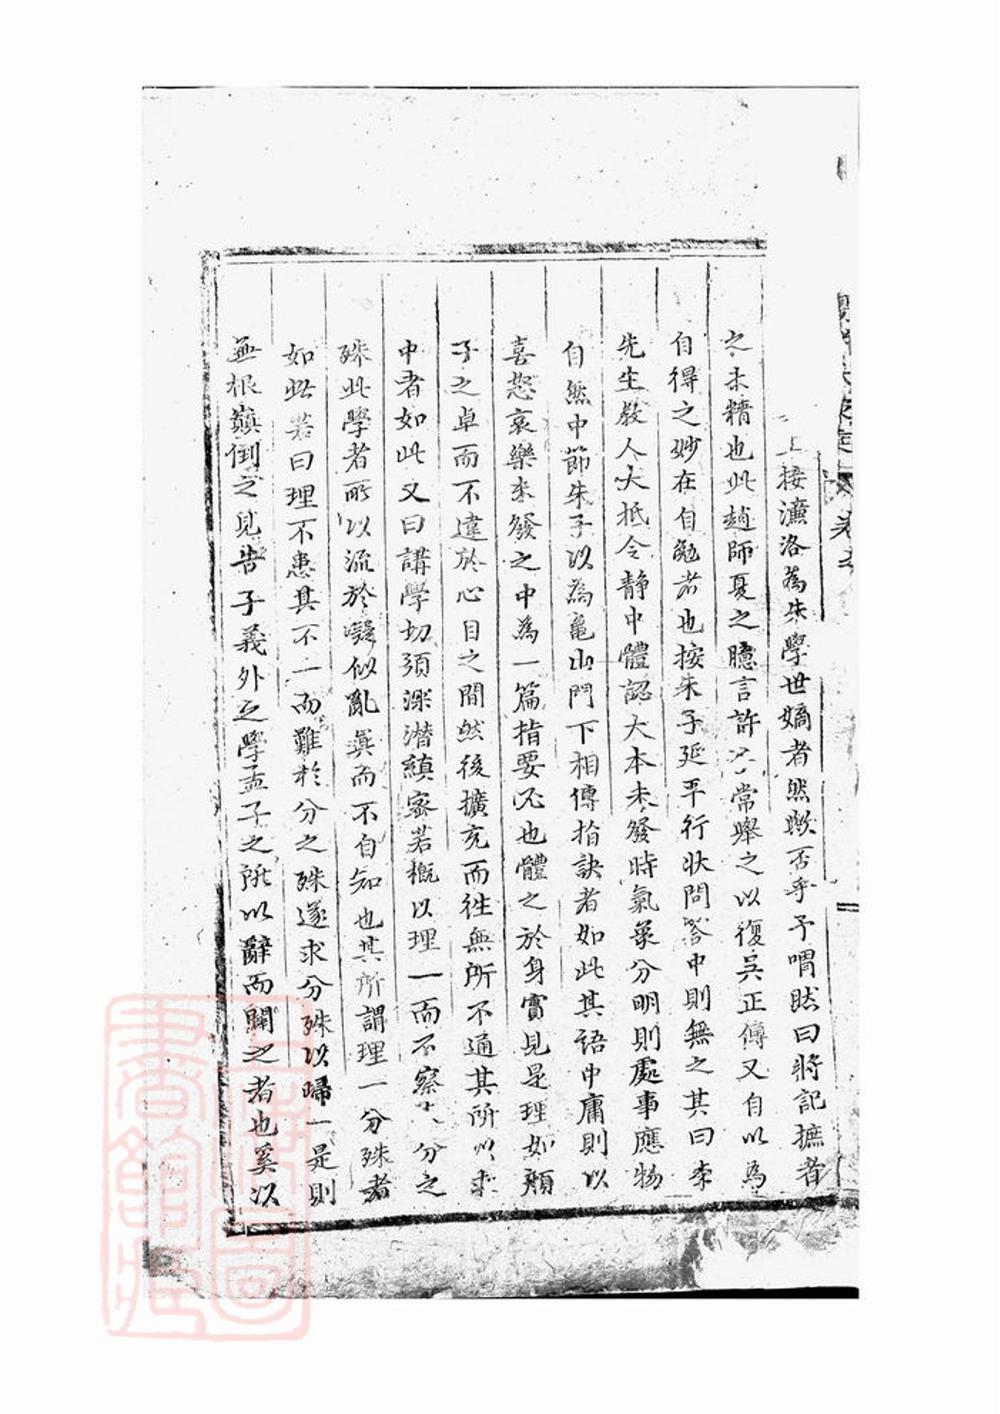 上接濓洛為朱學世嫡者然歟否乎予喟然曰將記摭者
之未精也此趙師夏之臆言許常舉之以復吳正傳又自以為
自得之妙在自勉者也按朱子延平行狀問答中則無之其曰李
先生教人大抵令靜中體認大本未發時氣象分明則處事應物
自然中節朱子以為龜山門下相傳指訣者如此其語中庸則以
喜怒哀樂未發之中為一篇指要必也體之於身實見是理如顏
子之卓而不違於心目之間然後擴充而往無所不通其所以求
中者如此又曰講學切須深潛縝密若槪以理一而不察分之
殊此學者所以流於疑似亂真而不自知也其所謂理一分殊者
如此若曰理不患其不一而難於分之殊遂求分殊以歸一是則
無根巔倒之見告子義外之學孟子之所以辭而闢之者也奚以